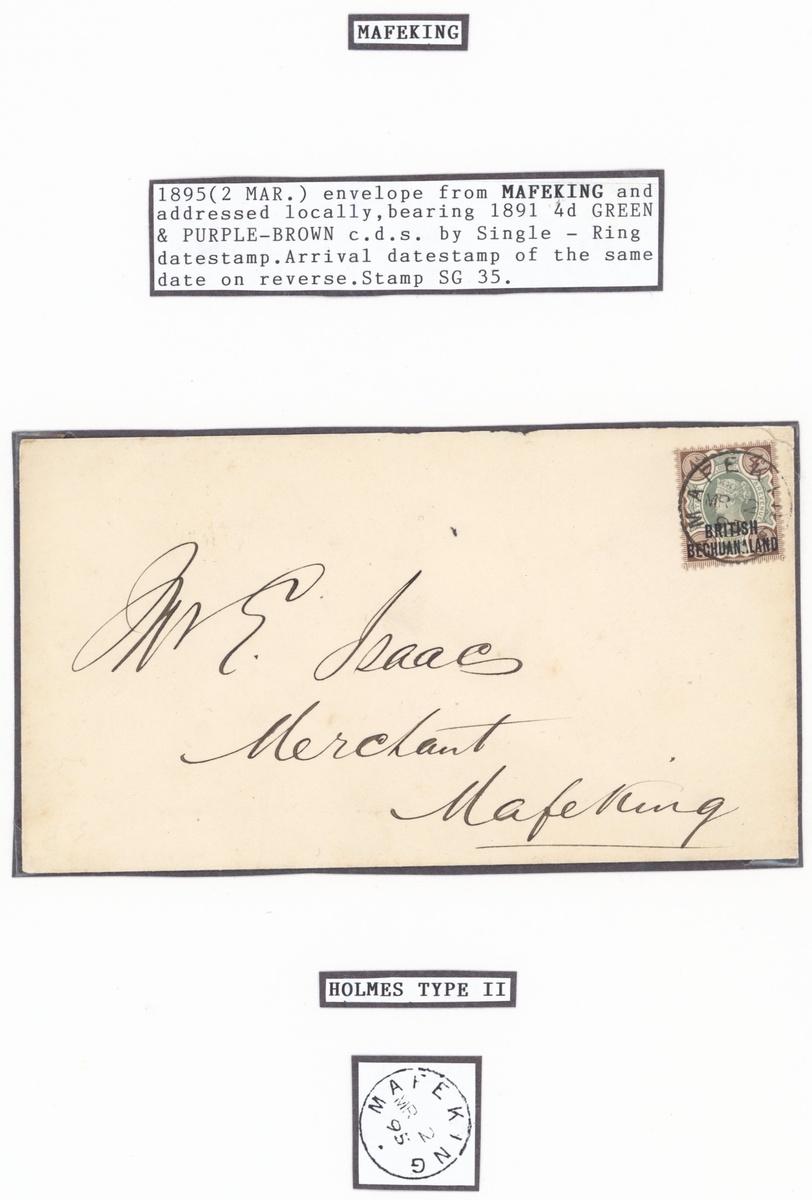 MAFEKING
1895(2 MAR.) envelope from MAFEKING and
addressed locally,bearing 1891 4d GREEN
& PURPLE-BROWN c.d.s. by Single - Ring
datestamp.Arrival datestamp of the same
date on reverse.Stamp SG 35.
MAFEKI
MR
BRITISH
BECHUANALAND
Mr E. Isaacs
Merchant
Mafeking
HOLMES TYPE II
MAFEKING.
MR 2
95